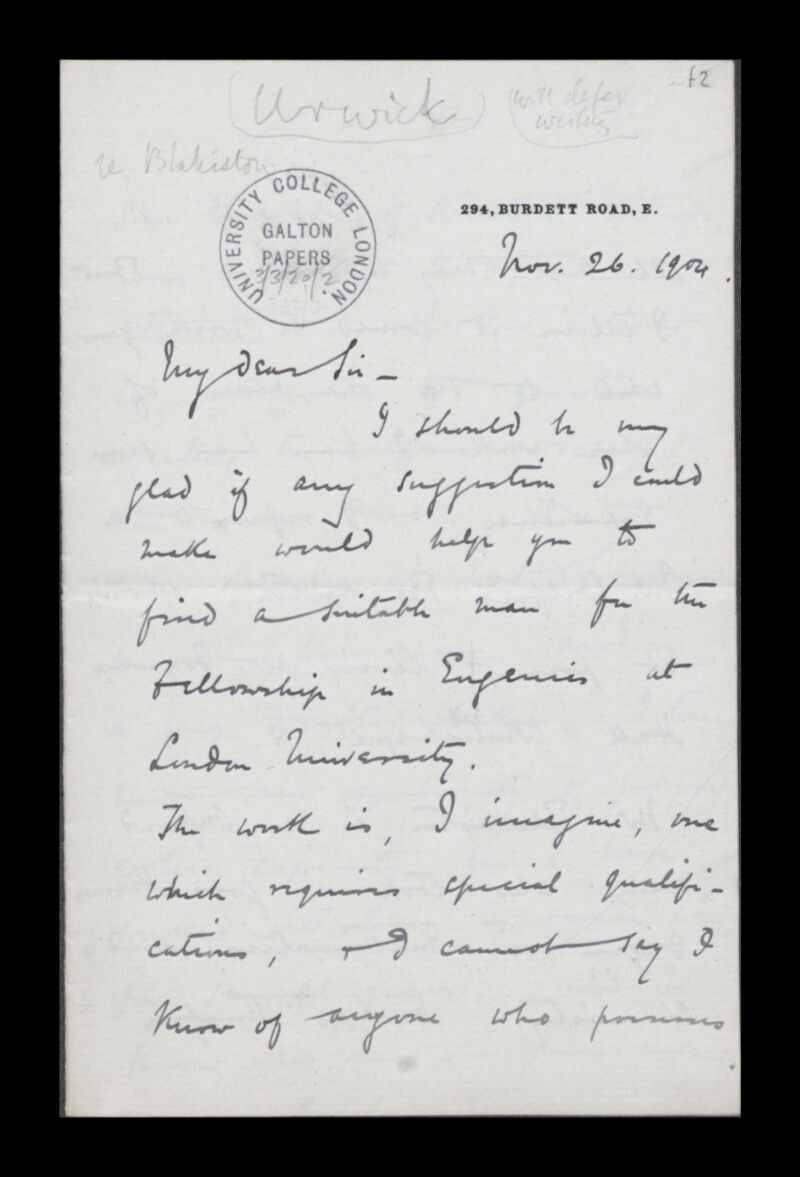 f2
Urwick
will defer
writing
re Blakiston
UNIVERSITY COLLEGE LONDON
GALTON
PAPERS
294, BURDETT ROAD, E.
Nov. 26. 1904.
My dear Sir —
I should be very
glad if any suggestion I could
make would help you to
find a suitable man for the
Fellowship in Eugenics at
London University.
The work is, I imagine, one
which requires special qualifi-
cations, & I cannot say I
know of anyone who possesses